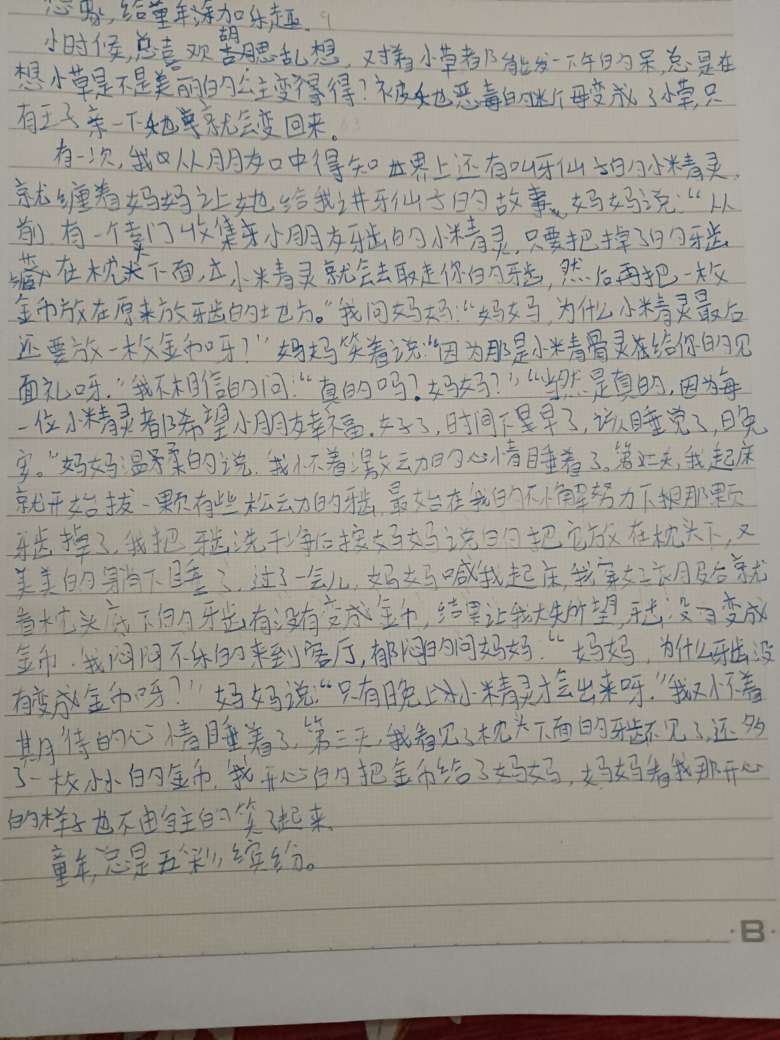 想象,给童年添加乐趣。
小时候,总喜欢胡思乱想,对着小草都能发一下午的呆,总是在
想小草是不是美丽的公主变得得?被她恶毒的后母变成了小草,只
有王子亲一下她就会变回来。
有一次,我又从朋友口中得知世界上还有叫牙仙子的小精灵,
就缠着妈妈让她给我讲牙仙子的故事。妈妈说:“从
前,有一个专门收集小朋友牙齿的小精灵,只要把掉了的牙齿
藏在枕头下面,小精灵就会去取走你的牙齿,然后再把一枚
金币放在原来放牙齿的地方。”我问妈妈:“妈妈,为什么小精灵最后
还要放一枚金币呀?”妈妈笑着说:“因为那是小精灵在给你的见
面礼呀。”我不相信的问:“真的吗?妈妈?”“当然是真的,因为每
一位小精灵都希望小朋友幸福。好了,时间不早了,该睡觉了,晚
安。”妈妈温柔的说。我怀着激动的心情睡着了。第二天,我起床
就开始拔一颗有些松动的牙齿,最终在我的不懈努力下那颗
牙齿掉了。我把牙齿洗干净后按妈妈说的把它放在枕头下,又
美美的躺下睡了。过了一会儿,妈妈喊我起床,我穿好衣服后就
看枕头底下的牙齿有没有变成金币,结果让我大失所望,牙齿没有变成
金币。我闷闷不乐的来到客厅,郁闷的问妈妈:“妈妈,为什么牙齿没
有变成金币呀?”妈妈说:“只有晚上小精灵才会出来呀。”我又怀着
期待的心情睡着了。第三天,我看见了枕头下面的牙齿不见了,还多
了一枚小小的金币。我开心的把金币给了妈妈,妈妈看我那开心
的样子也不由自主的笑了起来。
童年,总是五彩缤纷。
B